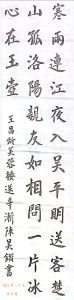 寒雨連江夜入吴平明送客楚
山孤洛陽親友如相問一片冰
心在玉壺
王昌齡芙蓉樓送辛漸 陳吴鎦書